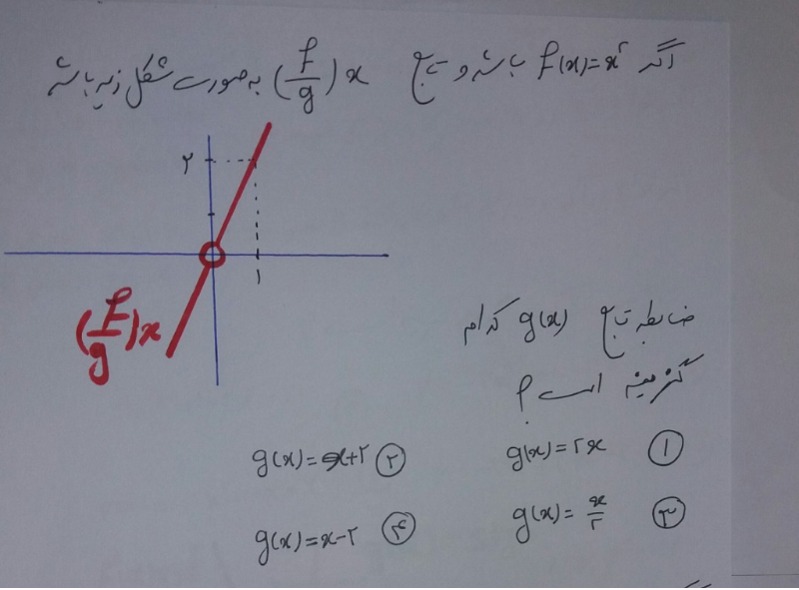 اگر f(x)=x² باشد و تابع (f/g)x به صورت شکل زیر باشد
۲
۱
(f/g)x
ضابطه تابع g(x) کدام
گزینه است؟
① g(x)=۲x ② g(x)=x+۲
③ g(x)=x/۲ ④ g(x)=x-۲